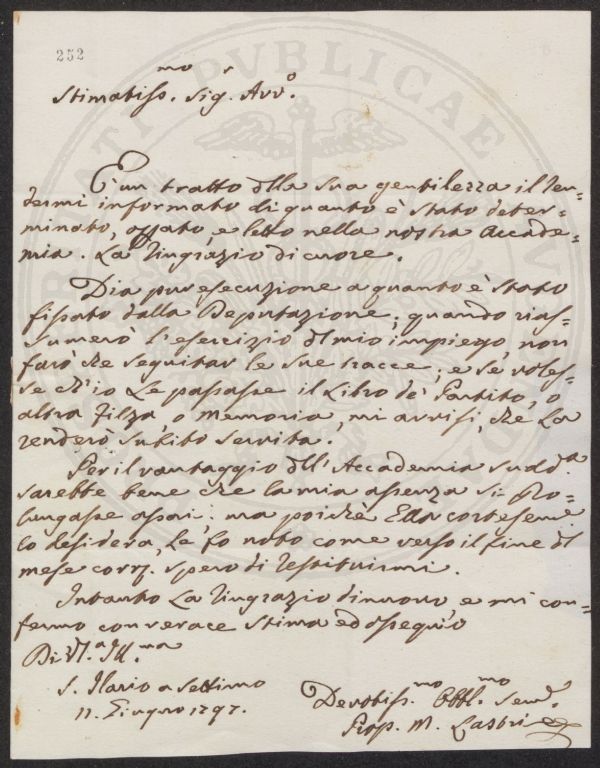 252
Stimatiss.mo Sig.r Avv.o
È un tratto dlla sua gentilezza il ren=
dermi informato di quanto è stato deter=
minato, e letto nella nostra Accade=
mia. La ringrazio di cuore.
Dia pur esecuzione a quanto è stato
fissato dalla Deputazione; quando rias=
sumerò l'esercizio dl mio impiego, non
farò che seguitar le sue tracce; e se voles=
se ch'io Le passasse il Libro de' Partiti, o
altra filza, o memoria, mi avvisi, che La
renderò subito servita.
Per il vantaggio dll'Accademia sudd.a
sarebbe bene che la mia assenza si pro=
lungasse assai: ma poichè Ella cortesem.e
lo desidera, Le fo noto come verso il fine dl
mese corr. spero di restituirmi.
Intanto La ringrazio di nuovo, e mi con=
fermo con verace stima ed ossequio
Di V.a Ill.ma
S. Ilario a Settimo
11. Giugno 1797.
Devotiss.mo Obbl.mo Serv.e
Prop. M. Lastri
PUBLICAE